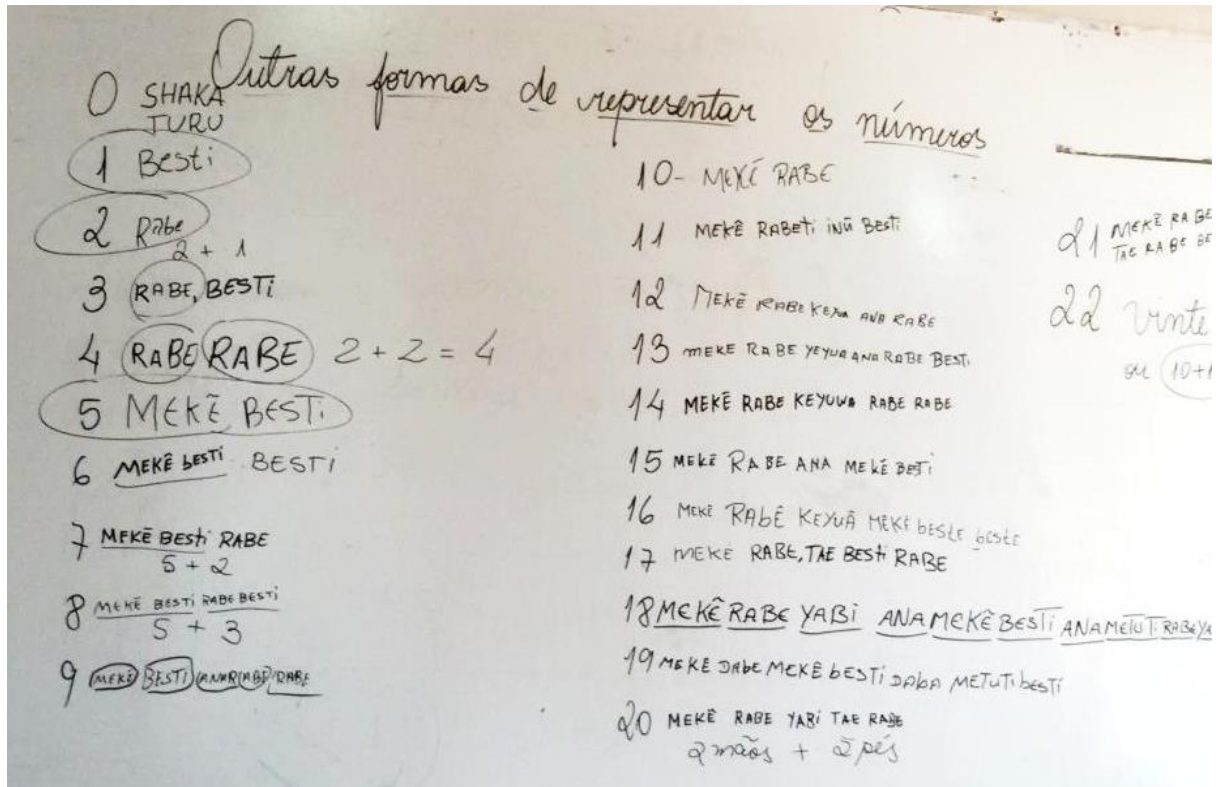 Outras formas de representar os números
0 SHAKA
TURU
1 Besti
2 Rabe
2 + 1
3 RABE, BESTI
4 RABE RABE 2 + 2 = 4
5 MEKẼ BESTI
6 MEKÊ bESTI BESTI
7 MEKẼ BESti RABE
5 + 2
8 MEKẼ BESTI RABE BESTI
5 + 3
9 MEKẼ BESTI ANA RABE RABE
10- MEKẼ RABE
11 MEKÊ RABETI INŨ BESTI
12 MEKẼ RABE ANA RABE
13 MEKE RABE ANA RABE BESTI
14 MEKẼ RABE KEYUWA RABE RABE
15 MEKẼ RABE ANA MEKẼ BESTI
16 MEKE RABÊ KEYUÃ MEKE beste beste
17 MEKE RABE, TAE BESTI RABE
18 MEKÊ RABE YABI ANA MEKÊ BESTI ANA METUTI RABE YA
19 MEKE DABE MEKÊ bESTI DABA METUTI bESTI
20 MEKÊ RABE YABI TAE RABE
2 mãos + 2 pés
21 MEKẼ RABE
TAE RABE BE
22 Vinte
ou 10+1